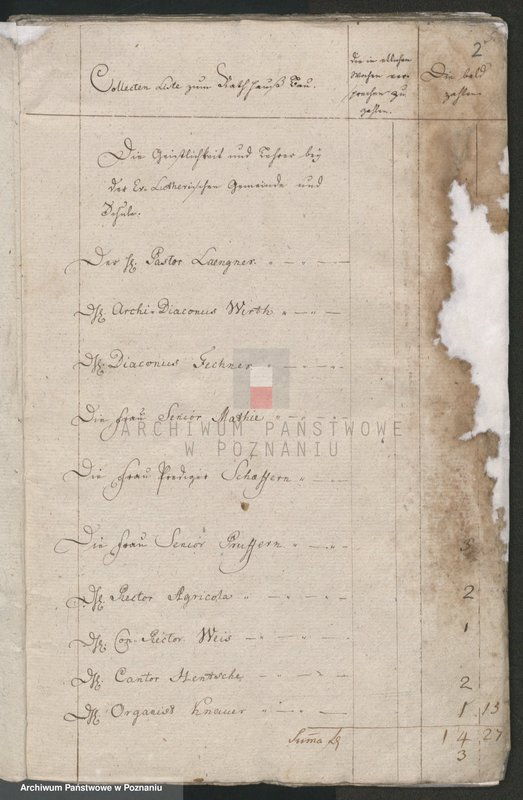 2
Collecten Liste zum Rathhauß Bau.
die in etlichen
Wochen ver-
sprochen zu
zahlen.
Die bald
zahlen
Die Geistlichkeit und Lehrer bey
der Ev. Lutherischen Gemeinde und
Schule.
Der H. Pastor Laengner
H. Archi-Diaconus Werth
H. Diaconus Fechner
Die Frau Senior Mathie
Die Frau Prediger Schæffern
Die Frau Senior Pruffern 3
H. Rector Agricola 2
H. Con-Rector Weis 1
H. Cantor Hentsche 2
H. Organist Knauer 1 13
Suma 14 27
3
ARCHIWUM PAŃSTWOWE
W POZNANIU
Archiwum Państwowe w Poznaniu